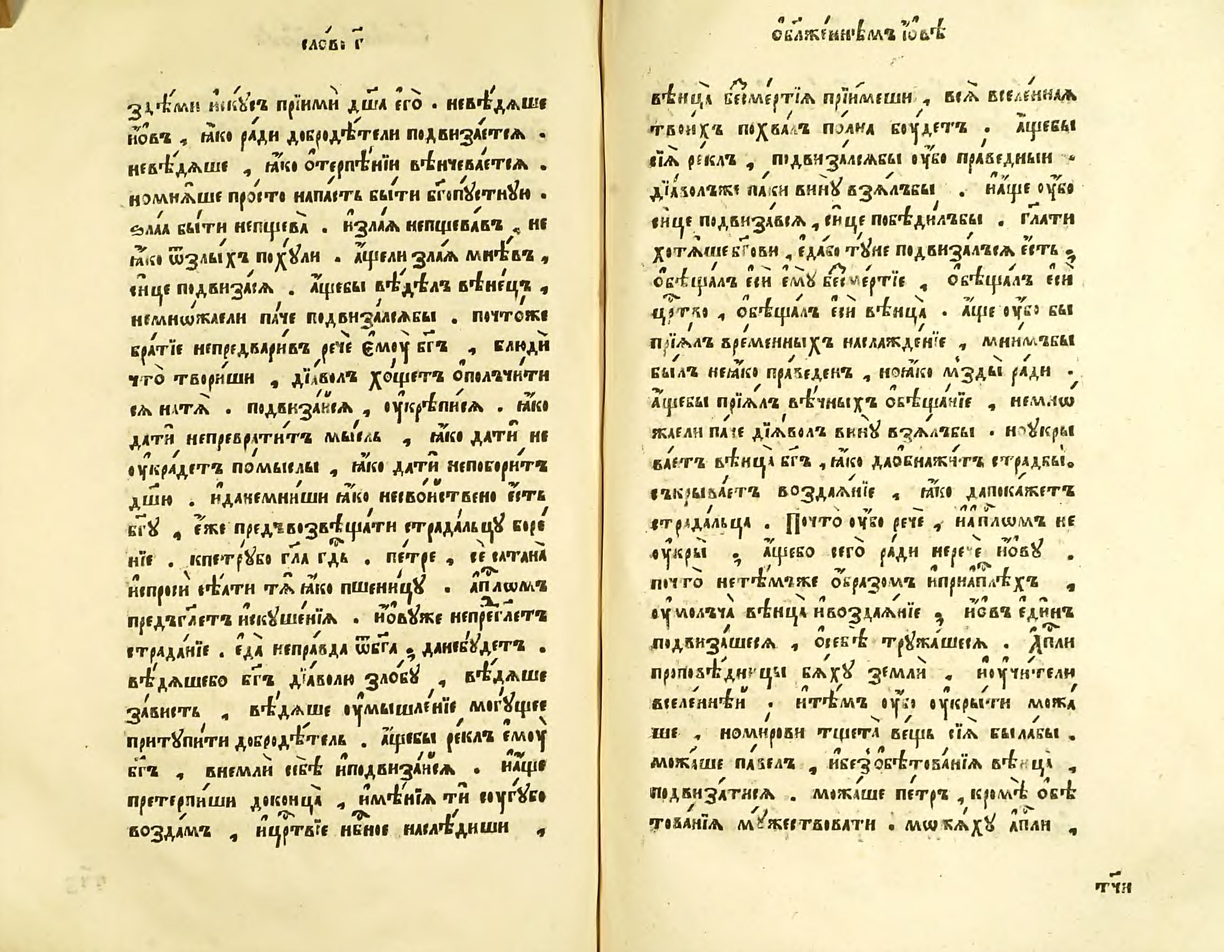 сло́в: г҃
здѣ́ми искꙋ́съ прїими̇̀ дш҃а̀ его̀ . невѣ́дѧше
и҆́овъ , ꙗ҆́ко ради добродѣ́тели подвиза́етсѧ .
невѣ́дѧше , ꙗ҆́ко ѡ҆терпѣ́нїи вѣнчева́етсѧ .
номнѧ́ше про́сто напа́сть бы́ти бг҃опꙋстнꙋю .
ѕла́а бы́ти непщева̀ . и҆зла́ѧ непщева́въ , не
ꙗ҆́ко ѿзлы́хъ похꙋ́ли . а҆́щели зла́ѧ мнѣ́въ ,
си́це подвиза́сѧ . а҆́щебы вѣ́дѣлъ вѣне́цъ ,
немнѡжа́ели па́че подвиза́лсѧбы . почто́же
бра́тїе непредвари́въ речѐ є҆моу̀ бг҃ъ , блюдѝ
что̀ твори́ши , дїа́волъ хо́щетъ ѡ҆полчи́ти
сѧ на́тѧ . подвиза́йсѧ , оу҆крѣпи́сѧ . ꙗ҆́ко
дати̂ непреврати́тъ мы́сль , ꙗ҆́ко дати̂ не
оу҆кра́детъ по́мыслы , ꙗ҆́ко дати̂ непобори́тъ
дш҃ю . и҆даꙗ҆́ко несво́йствено є҆́сть
бг҃ꙋ , є҆́же пре́дъвозвѣща́ти страда́льцꙋ боре́
нїе . кпетрꙋ́бо гл҃а гд҃ь . пе́тре , сѐ сатана̀
и҆спросѝ сѣ́ѧти тѧ̀ ꙗ҆́ко пшени́цꙋ . а҆пⷭ҇лѡмъ
предъгл҃етъ и҆скꙋше́нїѧ . и҆́овꙋже непрегл҃етъ
страда́нїе . є҆да̀ непра́вда ѿбг҃а , данебꙋ́детъ .
вѣ́дѧшебо бг҃ъ дїа́волю зло́бꙋ , вѣ́дѧше
за́висть , вѣ́дѧше оу҆мышле́нїе могꙋ́щее
притꙋпи́ти добродѣ́тель . а҆́щебы ре́клъ є҆моу̀
бг҃ъ , внемлѝ себѣ̀ и҆подвиза́йсѧ . и҆а҆́ще
претерпи́ши доконца̀ , и҆мѣ́нїѧ ти̂ соугꙋ́бо
возда́мъ , и҆црⷭ҇твїе нбⷭ҇ное наслѣ́диши ,
ѡ҆бл҃же́ннѣмъ і҆́овѣ
вѣнца̀ бесⸯме́ртїѧ прїи́меши , всѧ̀ вселе́ннаѧ
твои́хъ похва́лъ по́лна боу́детъ . а҆́щебы
сїѧ̀ ре́клъ , подвиза́лсѧбы оу҆́бо пра́ведныи .
дїа́волъже па́ки винꙋ̀ взѧ́лъбы . и҆а҆́ще оу҆́бо
си́це подвиза́всѧ , си́це побѣди́лъбы . гл҃ати
хотѧ́ше бг҃ови , є҆да́бо тꙋ́не подвиза́лъсѧ є҆́сть ,
ѡ҆бѣща́лъ є҆сѝ є҆мꙋ̀ бесⸯме́ртїе , ѡ҆бѣща́лъ є҆сѝ
црⷭ҇тво , ѡ҆бѣща́лъ є҆сѝ вѣнца̀ . а҆́ще оу҆́бо бы
прїѧ́лъ вре́менныхъ наслажде́нїе , мни́мъбы
бы́лъ неꙗ҆́ко пра́веденъ , ноꙗ҆́ко мзды̀ ради .
а҆́щебы прїѧ́лъ вѣ́чныхъ ѡ҆бѣща́нїе , немнѡ
жа́ели па́че дїѧ́волъ винꙋ̀ взѧ́лъбы . ноукры
ва́етъ вѣнца̀ бг҃ъ , ꙗ҆́ко даѡ҆бнажи́тъ стра́дбы .
съкрыва́етъ воздаѧ́нїе , ꙗ҆́ко дапока́жетъ
страда́льца . Почто̀ оу҆́бо речѐ , нⸯа҆пⷭ҇лѡмъ не
оу҆кры̀ , а҆́щебо сего̀ ра́ди неречѐ и҆́овꙋ .
почто̀ нетѣ́мъже ѡ҆́бразомъ и҆приа҆пⷭ҇лѣхъ ,
оу҆молъча̀ вѣнца̀ и҆воздаѧ́нїе , и҆́овъ є҆ди́нъ
подвиза́шесѧ , ѡ҆себѣ̀ трꙋжа́шесѧ . А҆пⷭ҇ли
проповѣ́дницы бѧ́хꙋ землѝ , и҆оучи́тели
вселе́ннѣй . и҆тѣ́мъ оу҆́бо оу҆кры́ти можа́
ше , номи́рови тщета̀ ве́щь сїѧ̀ была́бы .
можа́ше па́велъ , и҆безⸯѡ҆бѣтова́нїѧ вѣнца̀ ,
подвиза́тисѧ . можа́ше пе́тръ , кромѣ̀ ѡ҆бѣ
това́нїѧ мꙋ́жествовати . можа́хꙋ а҆пⷭ҇ли ,
тч҃и